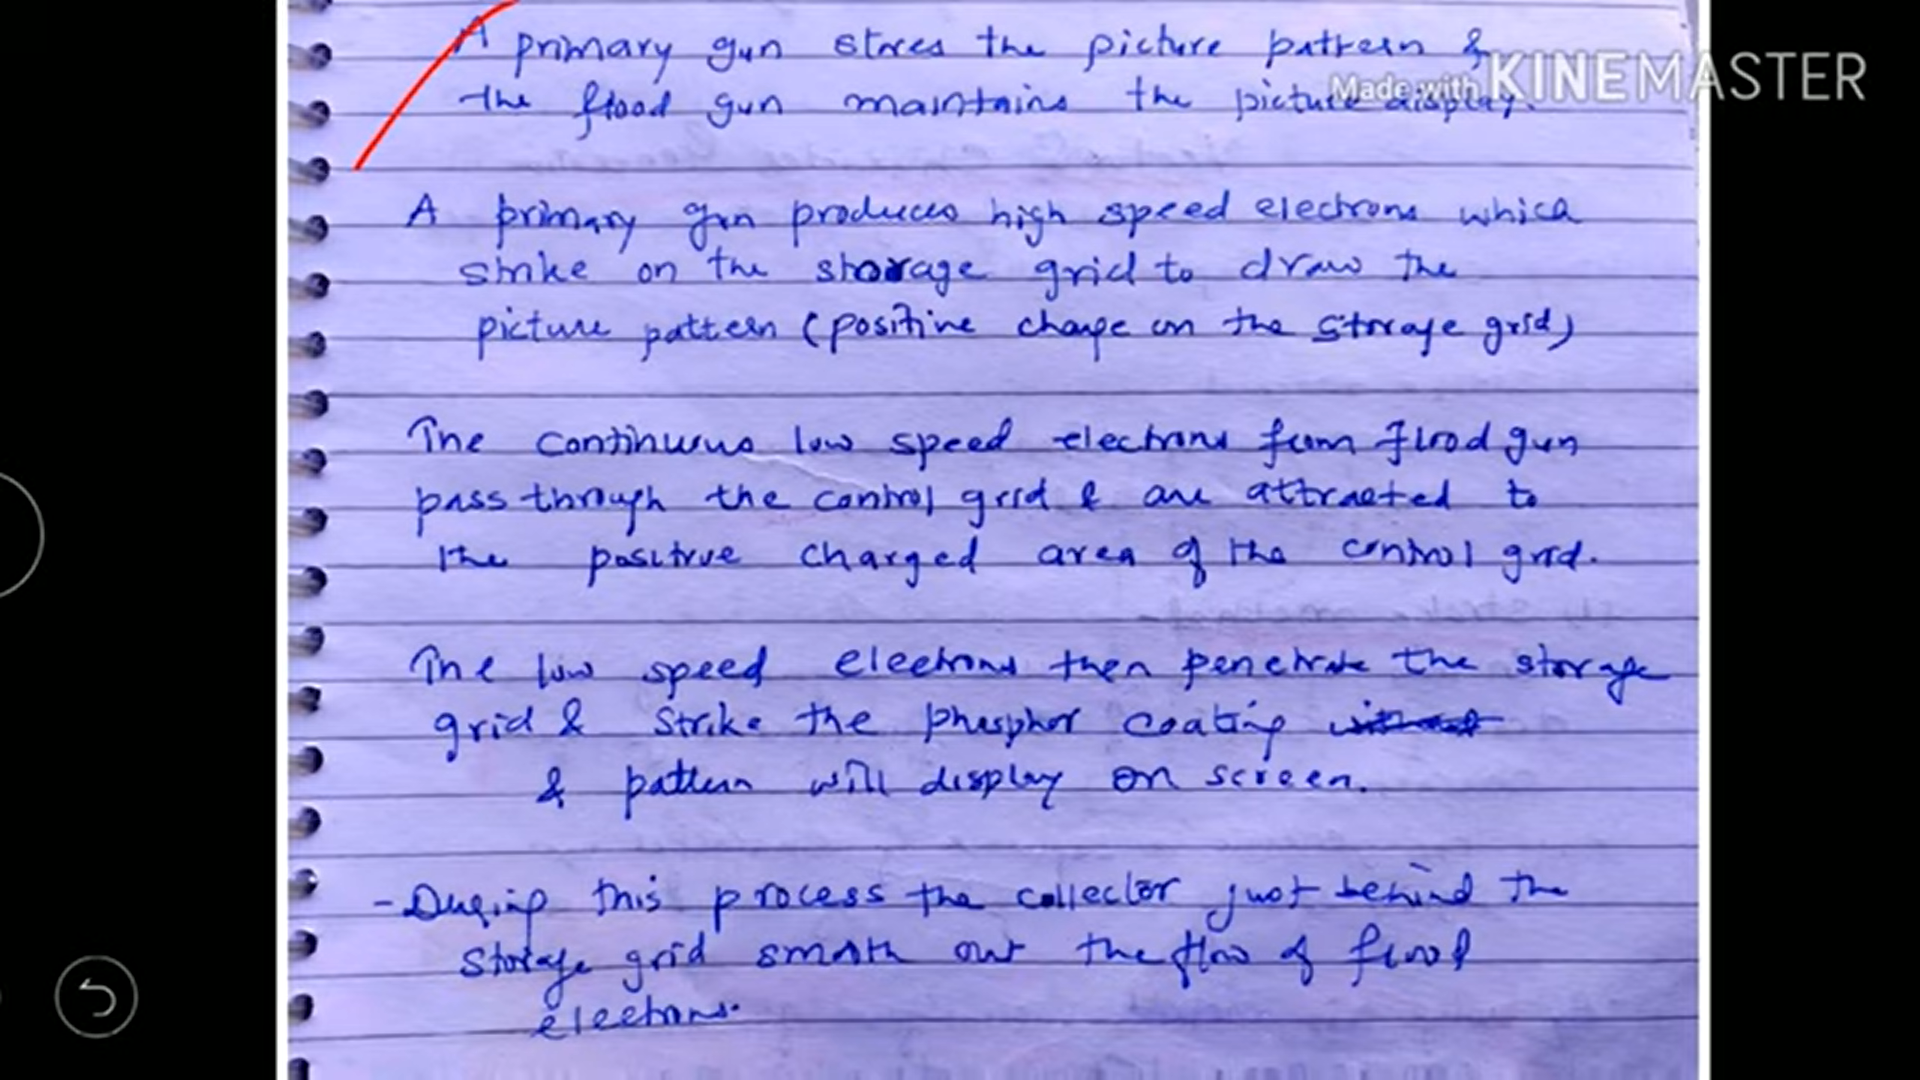 A primary gun stores the picture pattern &
Made with KINEMASTER
the flood gun maintains the picture display.
A primary gun produces high speed electrons which
strike on the storage grid to draw the
picture pattern (positive charge on the storage grid)
The continuous low speed electrons from flood gun
pass through the control grid & are attracted to
the positive charged area of the control grid.
The low speed electrons then penetrate the storage
grid & strike the phosphor coating
& pattern will display on screen.
- During this process the collector just behind the
storage grid smooth out the flow of flood
electrons.